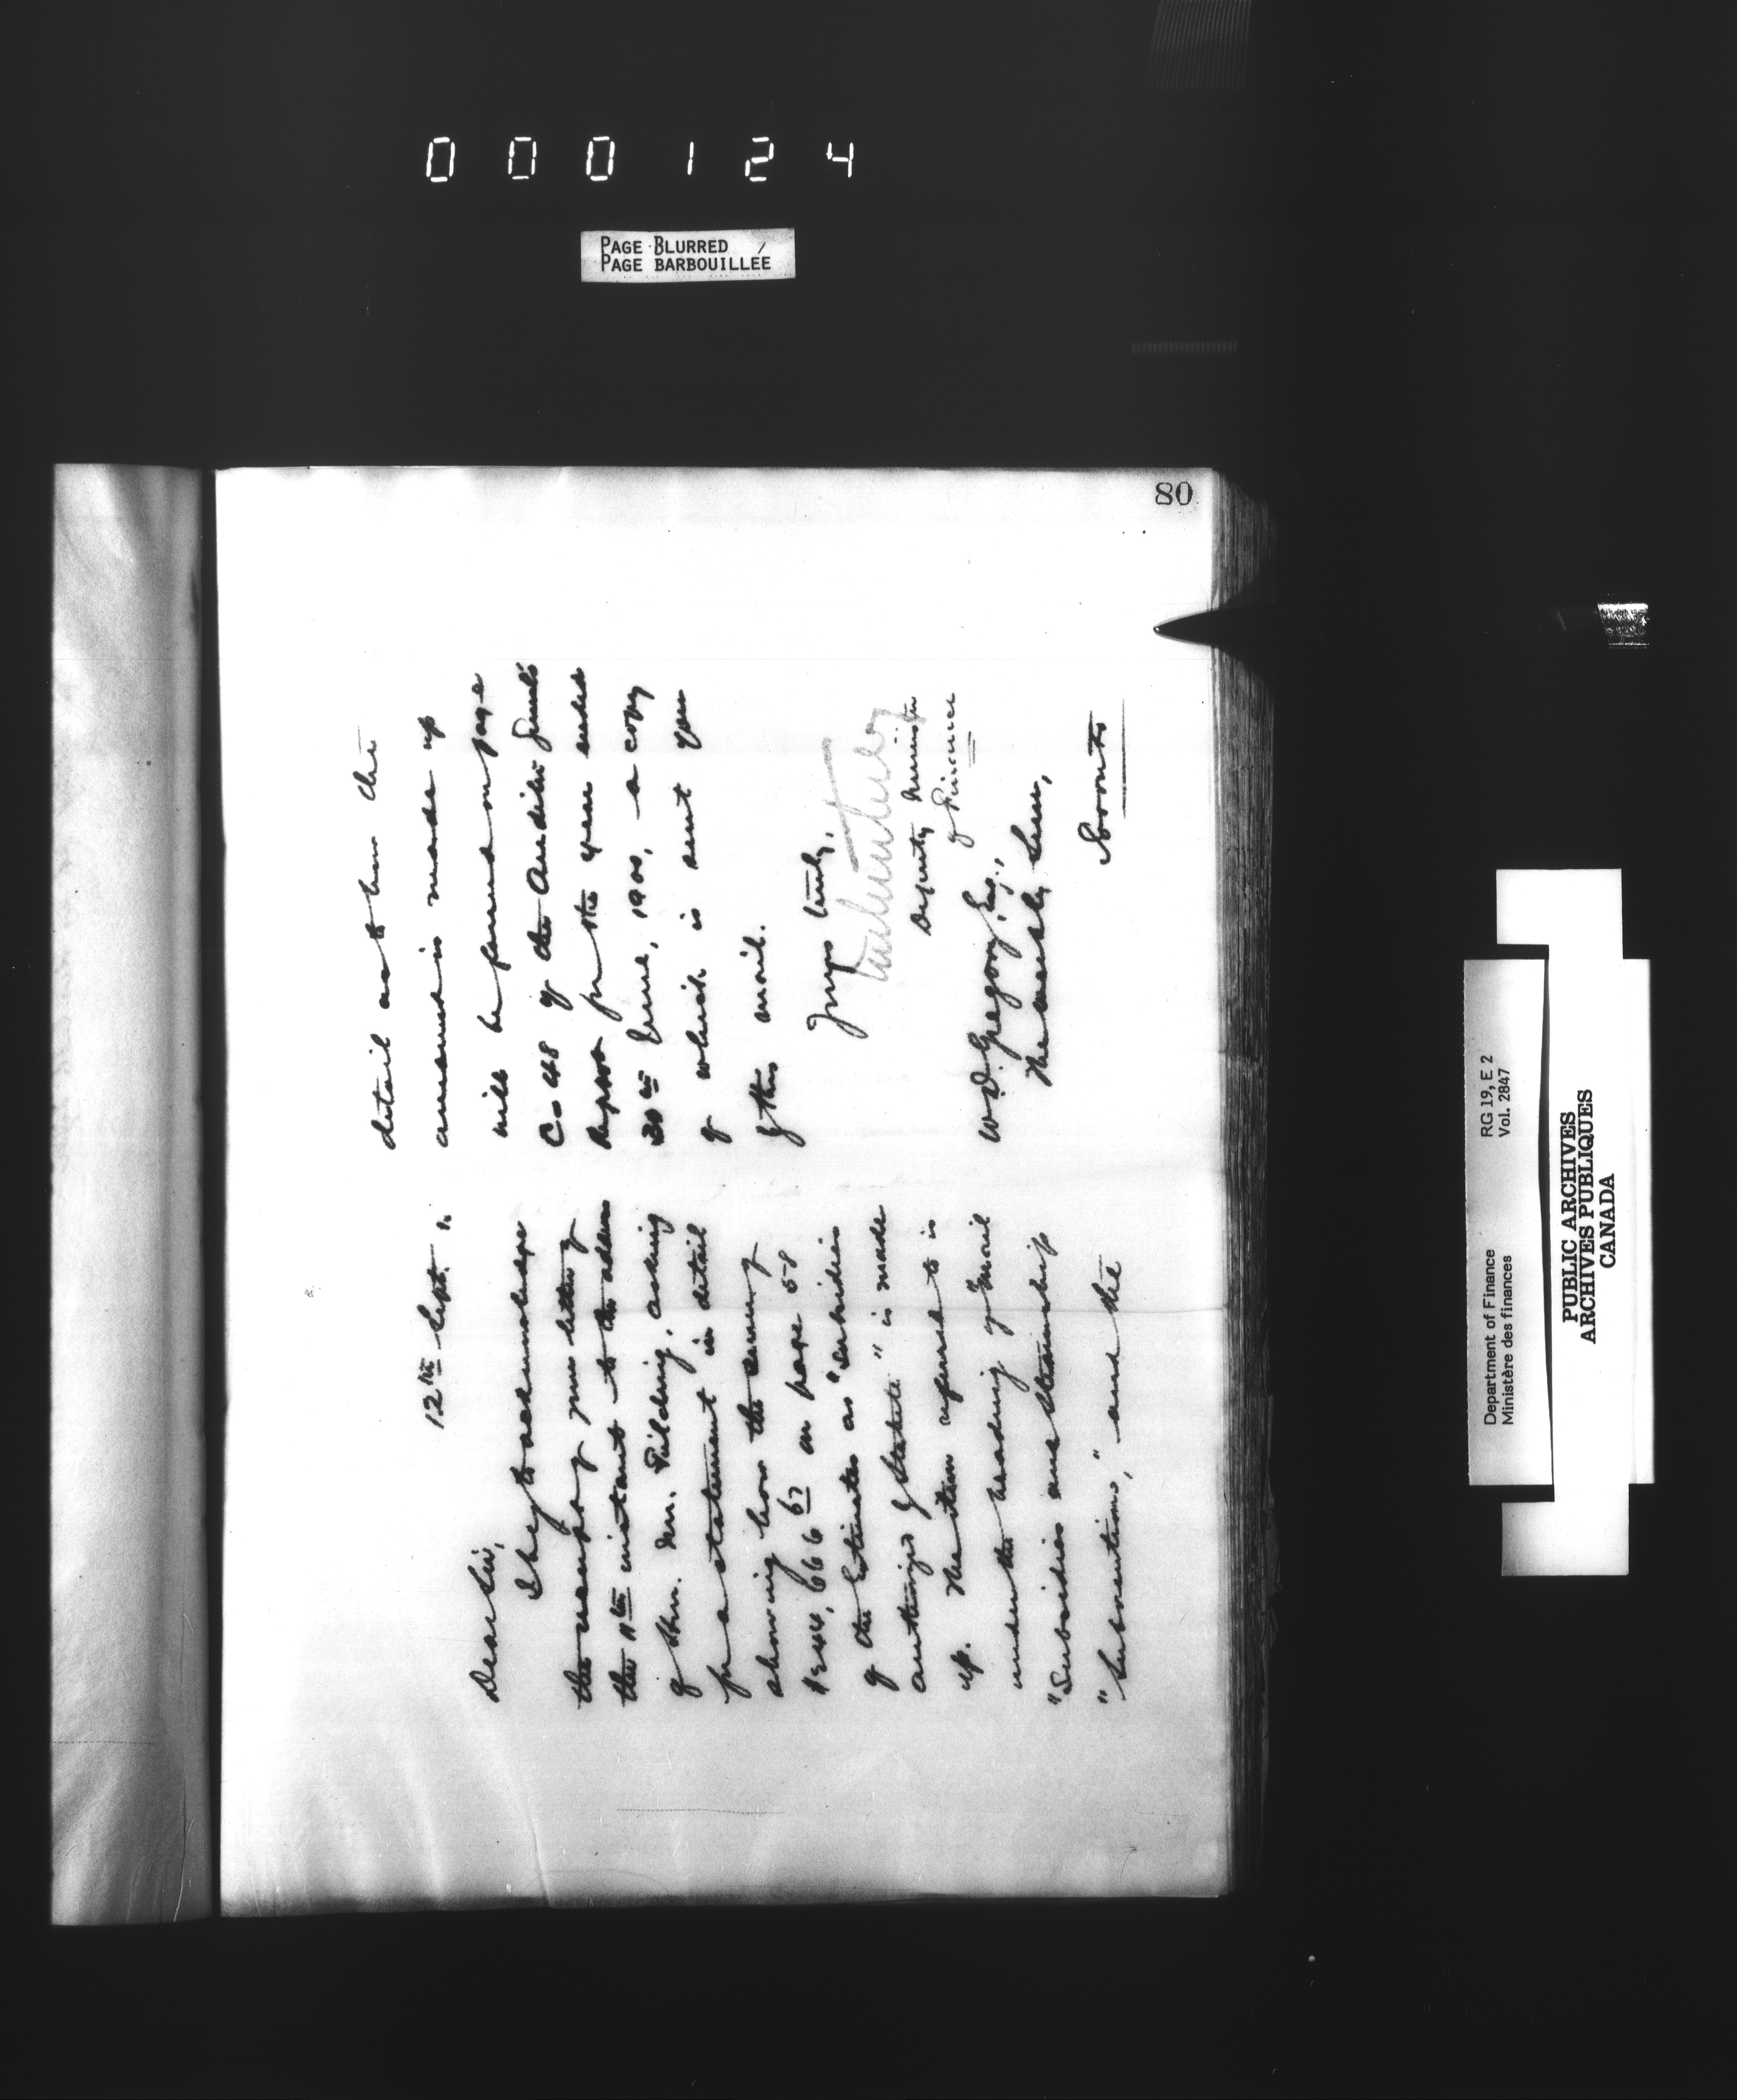 000124
PAGE BLURRED
PAGE BARBOUILLÉE
80
12th Sept. 1.
Dear Sir,
I beg to acknowledge
the receipt of your letter of
the 11th instant to the address
of Hon. Mr. Fielding, asking
for a statement in detail
showing how the sum of
666 67 on page 58
of the Estimates as "subsidies
authorized by Statute" is made
up. The item referred to is
under the heading of "Mail
"Subsidies and Steamship
"Subventions," and the
detail as to how the
amount is made up
will be found on page
of the Auditor Genl's
Report for the year ended
30th June, 1900, a copy
of which is sent you
by this mail.
Yours truly,
Deputy Minister
of Finance
W.D. Gregory, Esq.,
The Weekly Sun,
Toronto
Department of Finance
Ministère des finances
RG 19, E 2
Vol. 2847
PUBLIC ARCHIVES
ARCHIVES PUBLIQUES
CANADA